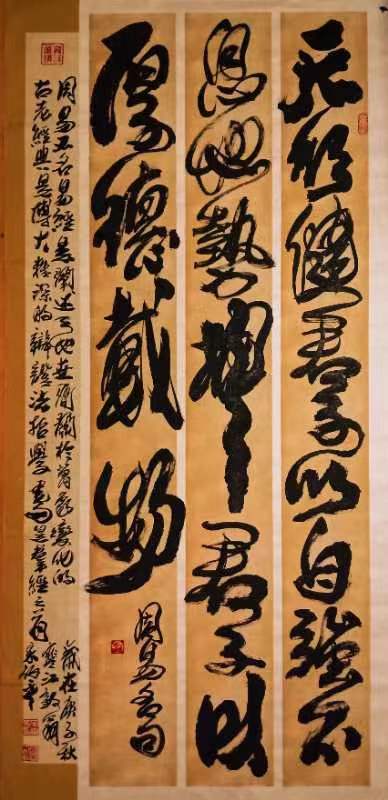 天行健君子以自強不
息地勢坤君子以
厚德載物
周易名句
周易又名易經是闡述天地世間關於萬象變化的
古老經典是博大精深的辯證法哲學書是群經之首
歲在庚子秋
雙江